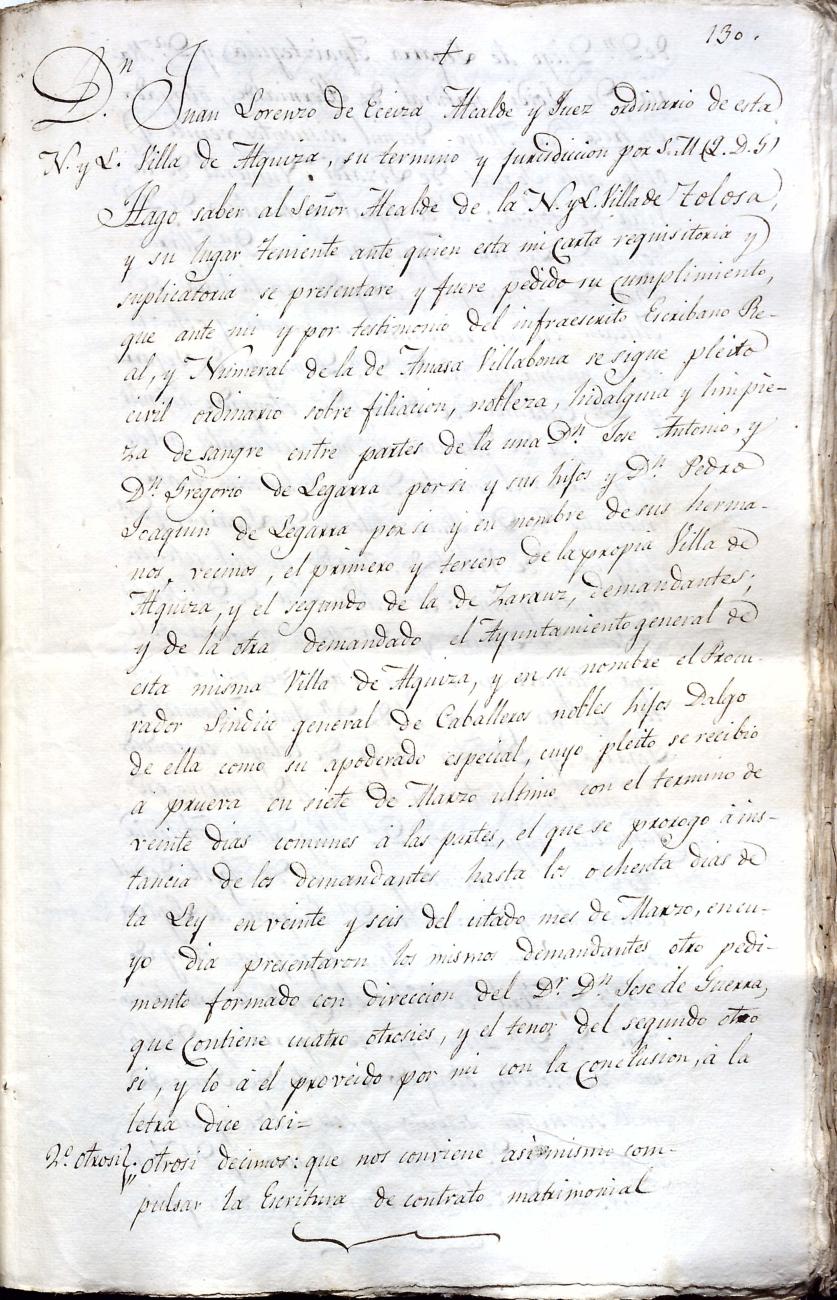 130.
+
Dn Juan Lorenzo de Eceiza Alcalde y Juez ordinario de esta
N. y L. Villa de Alquiza, su termino y jurisdiccion por S. M (Q. D. G)
Hago saber al Señor Alcalde de la N. y L. Villa de Tolosa,
y su lugar Teniente ante quien esta mi Carta requisitoria y
suplicatoria se presentare y fuere pedido su cumplimiento,
que ante mi y por testimonio del infraescrito Escribano Re-
al, y Numeral de la de Amasa Villabona se sigue pleito
civil ordinario sobre filiacion, nobleza, hidalguia y limpie-
za de sangre entre partes de la una Dn Jose Antonio, y
Dn Gregorio de Legarra por si y sus hijos y Dn Pedro
Joaquin de Legarra por si y en nombre de sus herma-
nos, vecinos, el primero y tercero de la propia Villa de
Alquiza, y el segundo de la de Zarauz, demandantes;
y de la otra demandado el Ayuntamiento general de
esta misma Villa de Alquiza, y en su nombre el Procu-
rador Sindico general de Caballeros nobles hijos Dalgo
de ella como su apoderado especial, cuyo pleito se recibio
a prueva en siete de Marzo ultimo con el termino de
veinte dias comunes à las partes, el que se prorogo à ins-
tancia de los demandantes hasta los ochenta dias de
la Ley en veinte y seis del citado mes de Marzo, en cu-
yo dia presentaron los mismos demandantes otro pedi-
mento formado con direccion del Dr. Dn Jose de Guerra,
que Contiene cuatro otrosies, y el tenor del segundo otro
si, y lo à el proveido por mi con la Conclusion, à la
letra dice asi=
2º. otrosi otrosi decimos: que nos conviene asimismo com-
pulsar la Escritura de contrato matrimonial